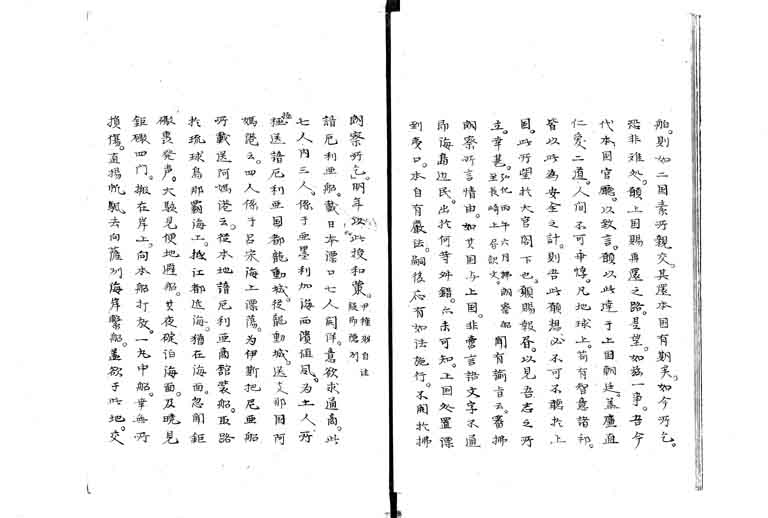 船。則如二国素所親交。其還本国有期矣。如今所乞。
恐非難処。願上国賜再還之路。是望。如茲一事。吾今
代本国官廳。以致言。願以此達于上国朝廷。蓋廉直
仁愛二道。人間不可乖惇。凡地球上。苟有智意諸邦。
皆以此為安全之計。則吾此願想必不可不聽於上
国。此所望於大官閣下也。願賜報答。以見吾志之所
立。幸甚。弘化丙午六月拂朗察船至長崎上呈訳文。聞有諭言云。審拂
朗察所言情由。如其国与上国。非啻言語文字不通
即海島辺民。出於何等外錯。亦未可知。上国処置漂
到夷口。本自有厳法。嗣後応有如法施行。不聞於拂
朗察所乞。明年以此授和蘭。
諳厄利亜船。載日本漂口七人開洋。意欲求通商。此
七人内三人。係于亜墨利加海面潰値風。為土人所
極送諳厄利亜国都龍動城。従龍動城。送支那国阿
媽港云。四人係于呂宋海上漂蕩。為伊斯把尼亜船
所載送阿媽港云。従本地諳厄利亜商館装船。取路
於琉球島那覇海上。抵江都近海。猶在海面。忽聞鉅
礟轟発声。大駭見便地避船。其夜碇泊海面。及暁見
鉅礟四門。搬在岸上。向本船打放。一丸中船。幸無所
損傷。直揚帆颿去向薩州海岸繋船。蓋欲于此地。交